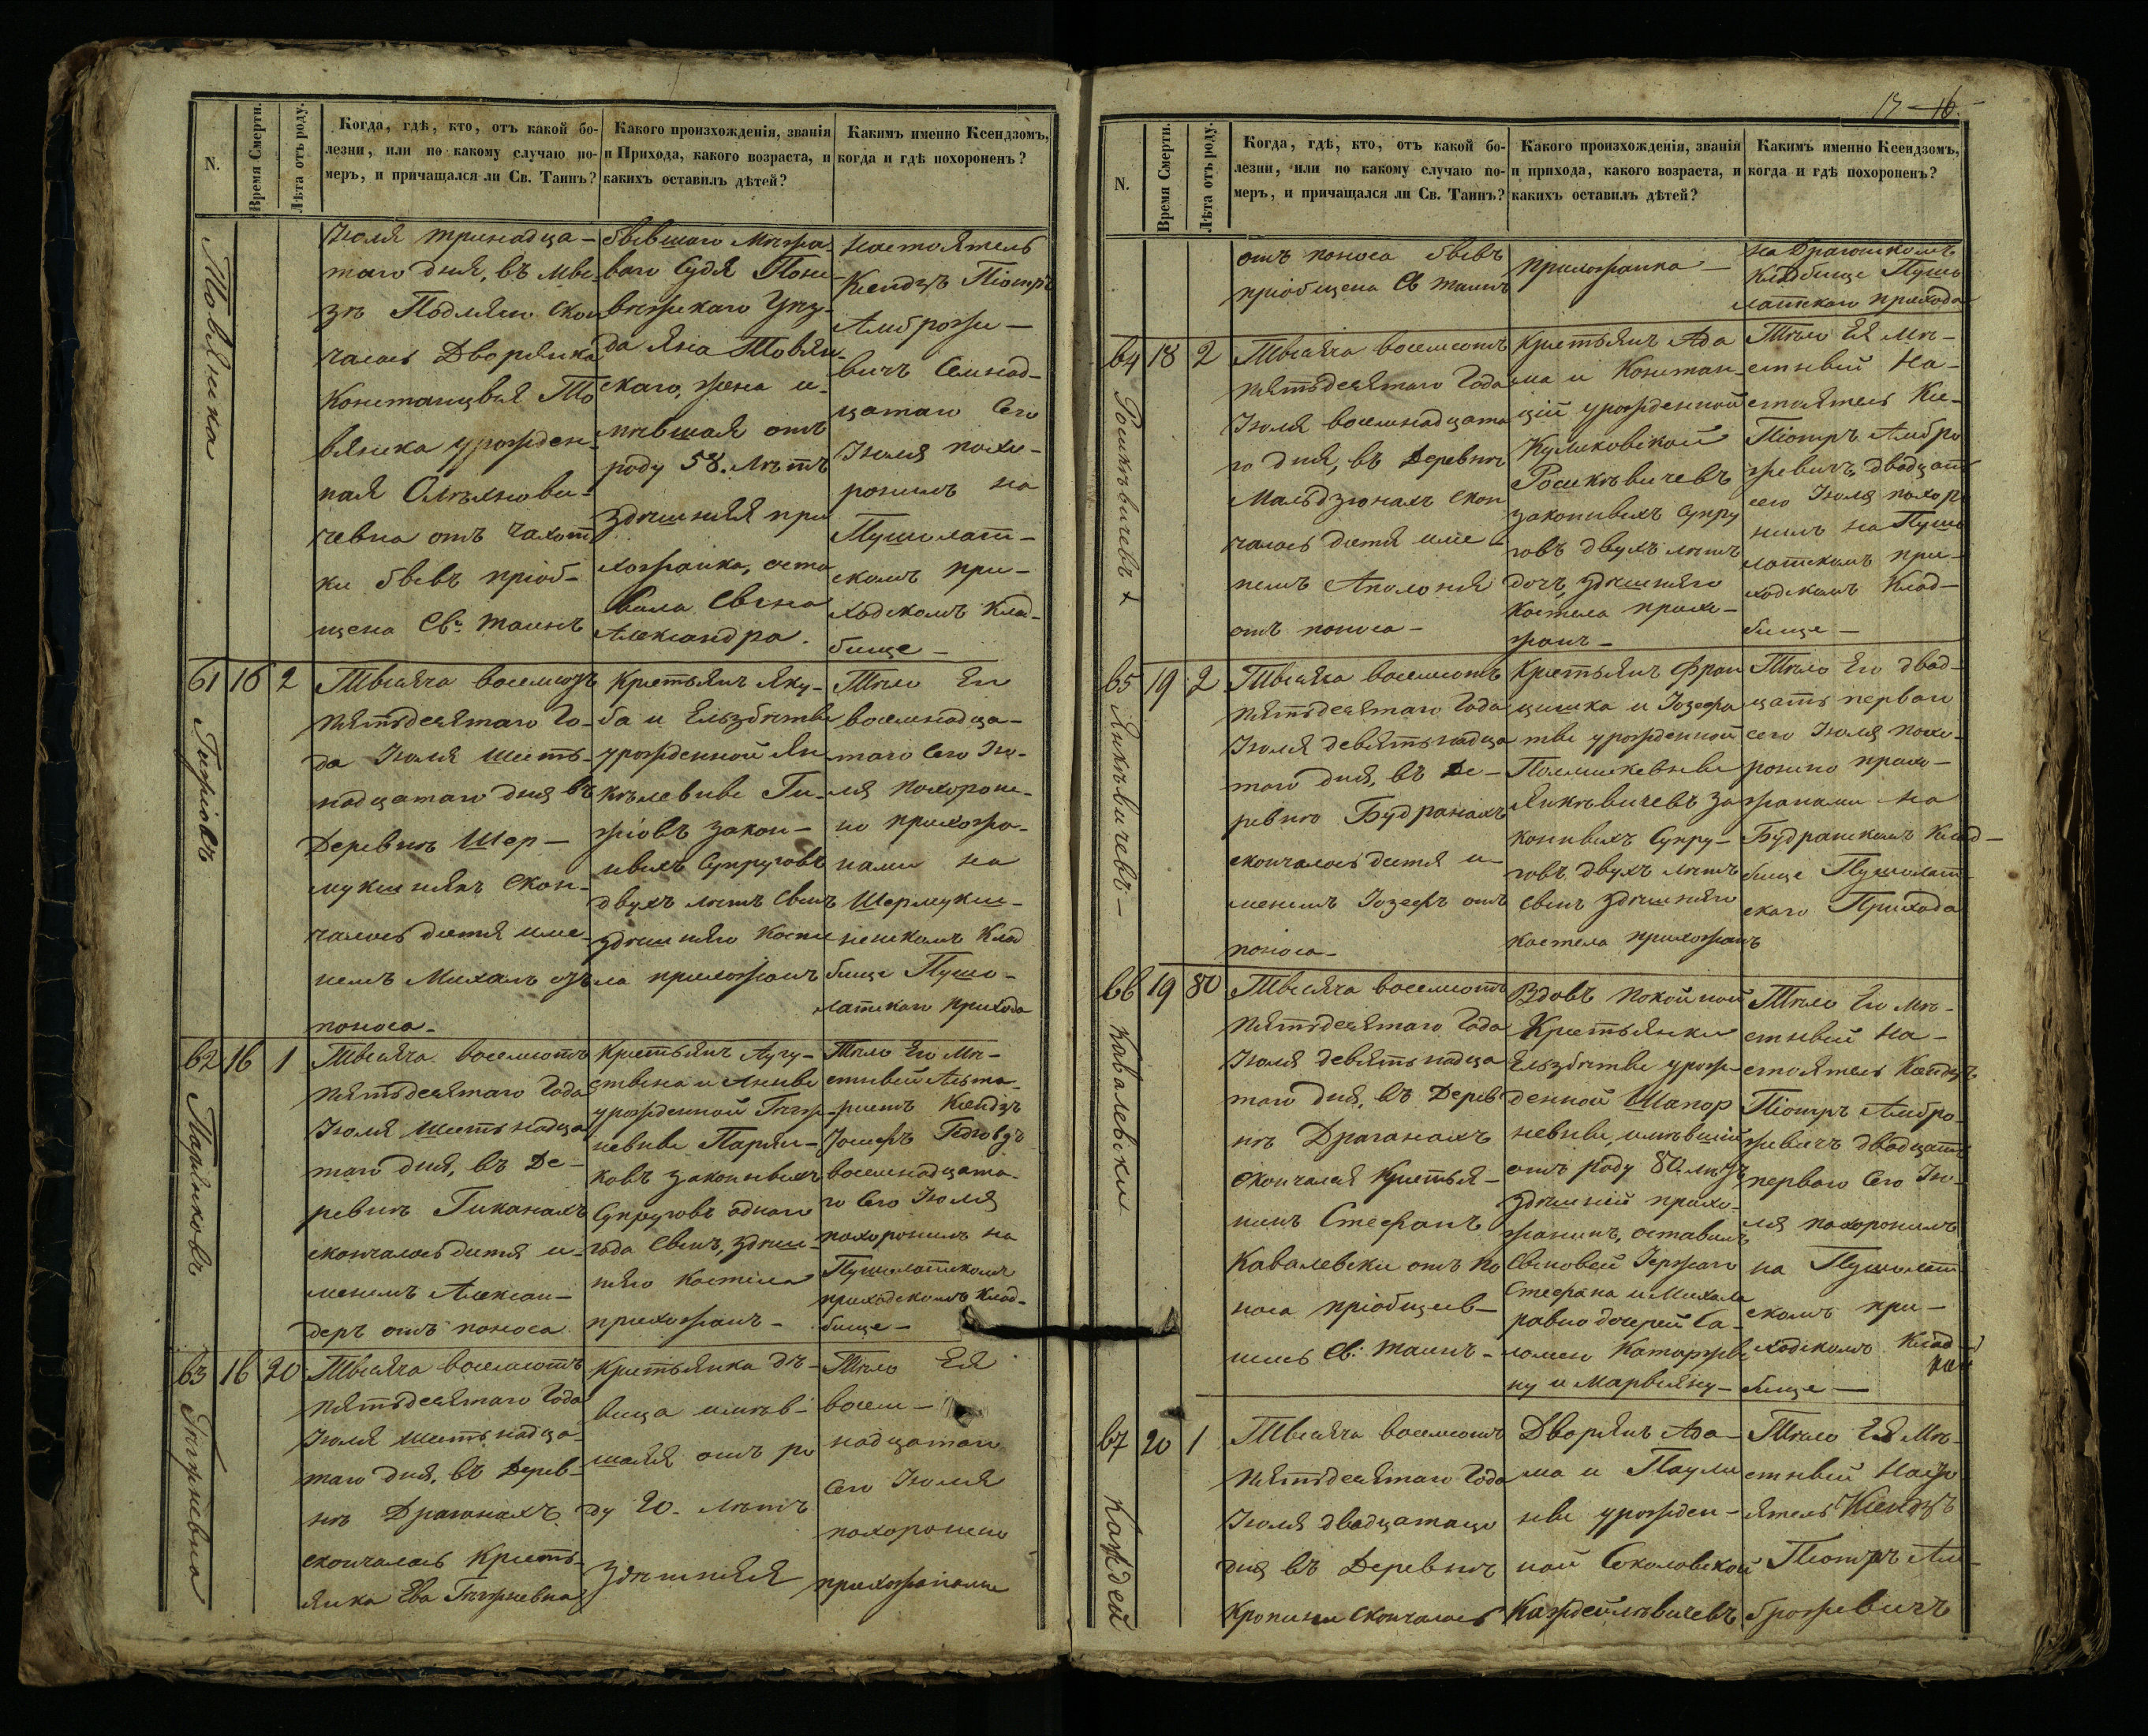 N.
Время Смерти.
Лѣта отъ роду.
Когда, гдѣ, кто, отъ какой бо-
лезни, или по какому случаю по-
меръ, и причащался ли Св. Таинъ?
Какого произхожденія, званія
и Прихода, какого возраста, и
какихъ оставилъ дѣтей?
Какимъ именно Ксендзомъ,
когда и гдѣ похороненъ?
Товянска
Іюля тринадца-
таго дня, въ
Скон
чалась Дворянка
Констанцыя То
вянска урожден-
ная
чевна отъ чахот
ки бывъ пріоб-
щена Св: таинъ
бывшаго Межа
ваго Судя Поне-
вѣжскаго Уѣз-
да Яна Товян-
скаго, жена и-
мѣвшая отъ
роду 58. лѣтъ
здѣшняя при
хожанка, оста
вила Сына
Александра.
Настоятель
Ксендзъ Піотръ
Амброже-
вичъ Семнад-
цатаго Сего
Іюля похо-
ронилъ на
Пушолат-
скомъ при-
ходскомъ Клад-
бище-
61 16 2
Гижіовъ
Тысяча восемсотъ
пятьдесятаго Го-
да Іюля шесть-
надцатаго дня въ
Деревнѣ Шер-
мукшняхъ Скон-
чалось дитя име-
немъ Михалъ отъ
поноса-
Крестьянъ Яку-
ба и Ельзбеты
урожденной Ян
кѣлевны Ги-
жіовъ закон-
ныхъ Супруговъ
двухъ лѣтъ Сынъ
здѣшняго Косте
ла прихожанъ
Тѣло Его
восемнадца-
таго Сего Ію-
ля похороне-
но прихожа-
нами на
Шермукш-
ненскомъ Клад
бище Пушо-
латскаго прихода
62 16 1
Тысяча восемсотъ
пятьдесятаго Года
Іюля шестьнадца
таго дня, въ Де-
ревнѣ Гиканахъ
скончалось дитя и-
менемъ Алексан-
деръ отъ поноса
Крестьянъ Авгу-
стына и Анны
урожденной Гѣгж-
невны
ковъ законныхъ
Супруговъ одного
года Сынъ, здѣш-
няго Костела
прихожанъ-
Тѣло Его Мѣ-
стный Альта-
ристъ Ксендзъ
восемнадцата-
го Сего Іюля
похоронилъ на
Пушолатскомъ
приходскомъ Клад-
бище-
63 16 20
Гѣгжневна
Тысяча восемсотъ
пятьдесятаго Года
Іюля шестьнадца-
таго дня, въ Дерев-
нѣ Драганахъ
скончалась Кресть-
янка Ева Гѣгжневна
Крестьянка дѣ-
вица имѣв-
шая отъ ро
ду 20. лѣтъ
здѣшняя
Тѣло Ея
восем-
надцатаго
Сего Іюля
похоронено
прихожанами
17 - 16.
N.
Время Смерти.
Лѣта отъ роду.
Когда, гдѣ, кто, отъ какой бо-
лезни, или по какому случаю по-
меръ, и причащался ли Св. Таинъ?
Какого произхожденія, званія
и прихода, какого возраста, и
какихъ оставилъ дѣтей?
Какимъ именно Ксендзомъ,
когда и гдѣ похороненъ?
отъ поноса бывъ
пріобщена Св таинъ
прихожанка-
на Драганскомъ
Кладбище Пушо
латскаго прихода
64 18 2
Тысяча восемсотъ
пятьдесятаго Года
Іюля восемнадцата
го дня, въ Деревнѣ
Скон
чалось дитя име-
немъ Аполонія
отъ поноса-
Крестьянъ Ада
ма и Констан-
ціи урожденной
Куликовской
законныхъ Супру
говъ двухъ лѣтъ
дочь, здѣшняго
Костела прихо-
жанъ-
Тѣло Ея Мѣ-
стный На-
стоятель Ксе-
Піотръ Амбро
жевичъ двадцат
сего Іюля похоро
нилъ на Пушо
латскомъ при-
ходскомъ Клад-
бище-
65 19 2
Янкѣвичевъ-
Тысяча восемсотъ
пятьдесятаго Года
Іюля девятьнадца
таго дня, въ Де-
ревнѣ Будранахъ
скончалось дитя и-
менемъ Іозефъ отъ
поноса-
Крестьянъ Фран
цишка и Іозефа
ты урожденной
Янкѣвичевъ за
конныхъ Супру-
говъ двухъ лѣтъ
Сынъ здѣшняго
Костела прихожанъ
Тѣло Его двад-
цать перваго
сего Іюля похо-
ронено прихо-
жанами на
Будранскомъ Клад-
бище Пушолат-
скаго Прихода
66 19 80
Ковалевски
Тысяча восемсотъ
пятьдесятаго Года
Іюля девятьнадца
таго дня, въ Дерев
нѣ Драганахъ
скончался Крестья-
нинъ Стефанъ
Ковалевски отъ по
носа пріобщив-
шись Св: таинъ-
Вдовъ покойной
Крестьянки
Ельзбеты урож-
денной Шапор
невны, имѣвшій
отъ роду 80. лѣтъ
здѣшній прихо-
жанинъ, оставилъ
Сыновей Іержаго
Стефана и Михала
равно дочерей Са-
ломею Катаржы
ну и Марыяну-
Тѣло Его Мѣ-
стный На-
стоятель Ксендзъ
Піотръ Амбро-
жевичъ двадцать
перваго Сего Ію-
ля похоронилъ
на Пушолат-
скомъ при-
ходскомъ Клад-
бище-
67 20 1
Тысяча восемсотъ
пятьдесятаго Года
Іюля двадцатаго
дня въ Деревнѣ
скончалась
Дворянъ Ада-
ма и Паули
ны урожден-
ной Соколовской
Тѣло Ея Мѣ-
стный Насто
ятель Ксендзъ
Піотръ Ам-
брожевичъ